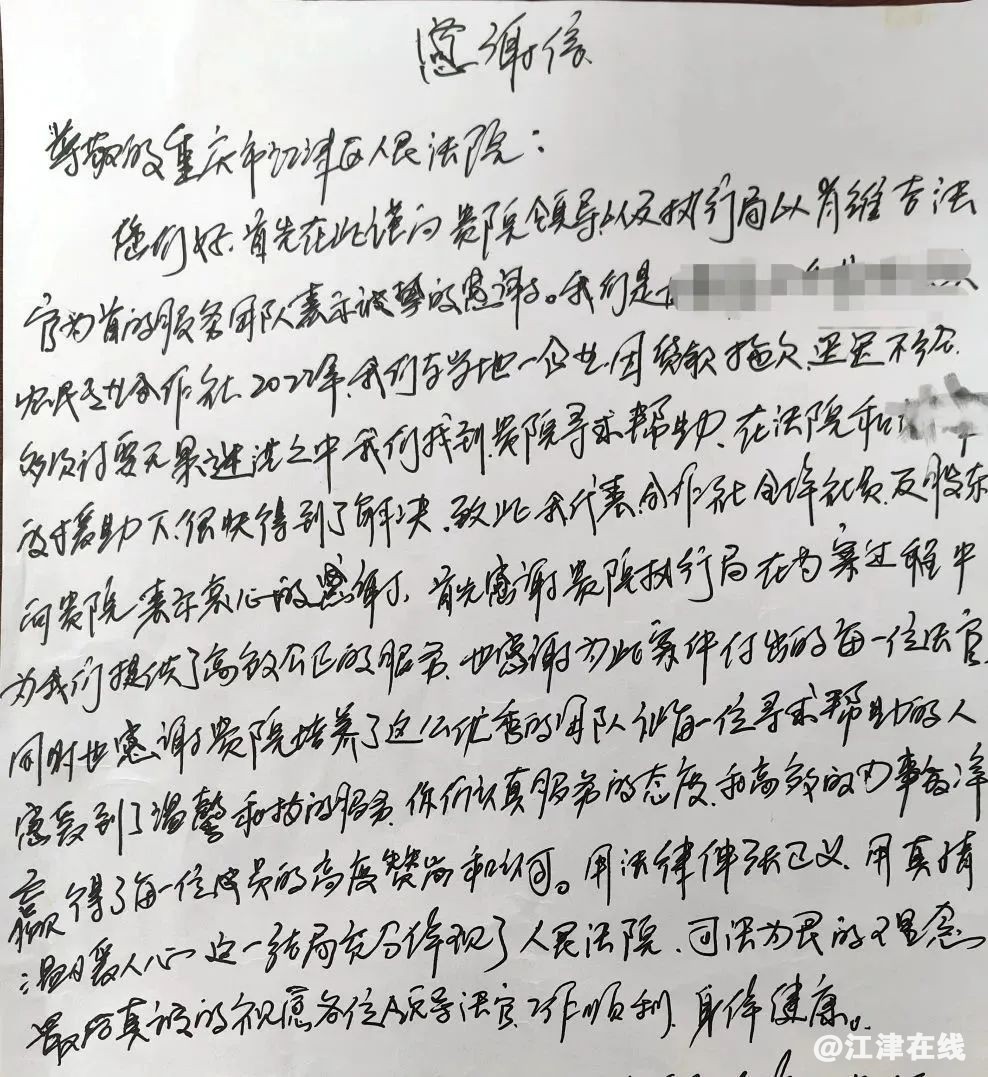 感谢信
尊敬的重庆市江津区人民法院：
您们好，首先在此谨向贵院领导以及执行局以肖维吉法
官为首的服务团队表示诚挚的感谢。我们是
农民专业合作社，2022年，我们与当地一企业因货款拖欠，迟迟不给，
多次讨要无果之中我们找到贵院寻求帮助，在法院和
援助下，很快得到了解决，致此我代表合作社全体社员及股东
向贵院表示衷心的感谢，首先感谢贵院执行局在办案过程中
为我们提供了高效公正的服务，也感谢为此案件付出的每一位法官，
同时也感谢贵院培养了这么优秀的团队让每一位寻求帮助的人
感受到了温馨和的服务，你们认真服务的态度，和高效的办事效率
赢得了每一位成员的高度赞尚和认可。用法律伸张正义，用真情
温暖人心，这一结局充分体现了人民法院，司法为民的理念
最后真诚的祝愿各位领导法官工作顺利，身体健康。
@江津在线